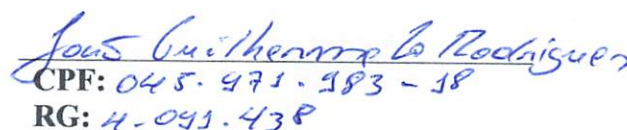 João Guilherme L Rodrigues
CPF: 045.971.983-18
RG: 4.091.438